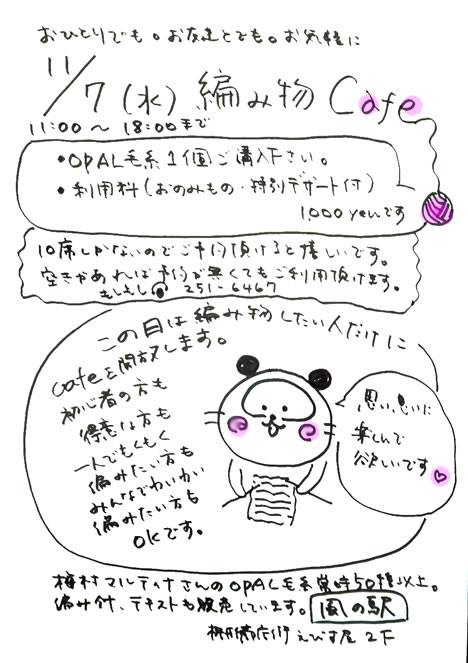 おひとりでも。お友達とでも。お気軽に
11/7(水) 編み物 Cafe
11:00〜18:00まで
・OPAL毛糸1個ご購入下さい。
・利用料(おのみもの・特別デザート付)
1000yenです
10席しかないのでご予約頂けると嬉しいです。
空きがあれば予約が無くてもご利用頂けます。
もしもし 251-6467
この日は編み物したい人だけに
cafeを開放します。
初心者の方も
得意な方も
一人でもくもく
編みたい方も
みんなでわいわい
編みたい方も
OKです。
思い思いに
楽しんで
欲しいです
梅村マルティナさんのOPAL毛糸常時50種以上。
編み針、テキストも販売しています。 風の駅
えびす屋 2F